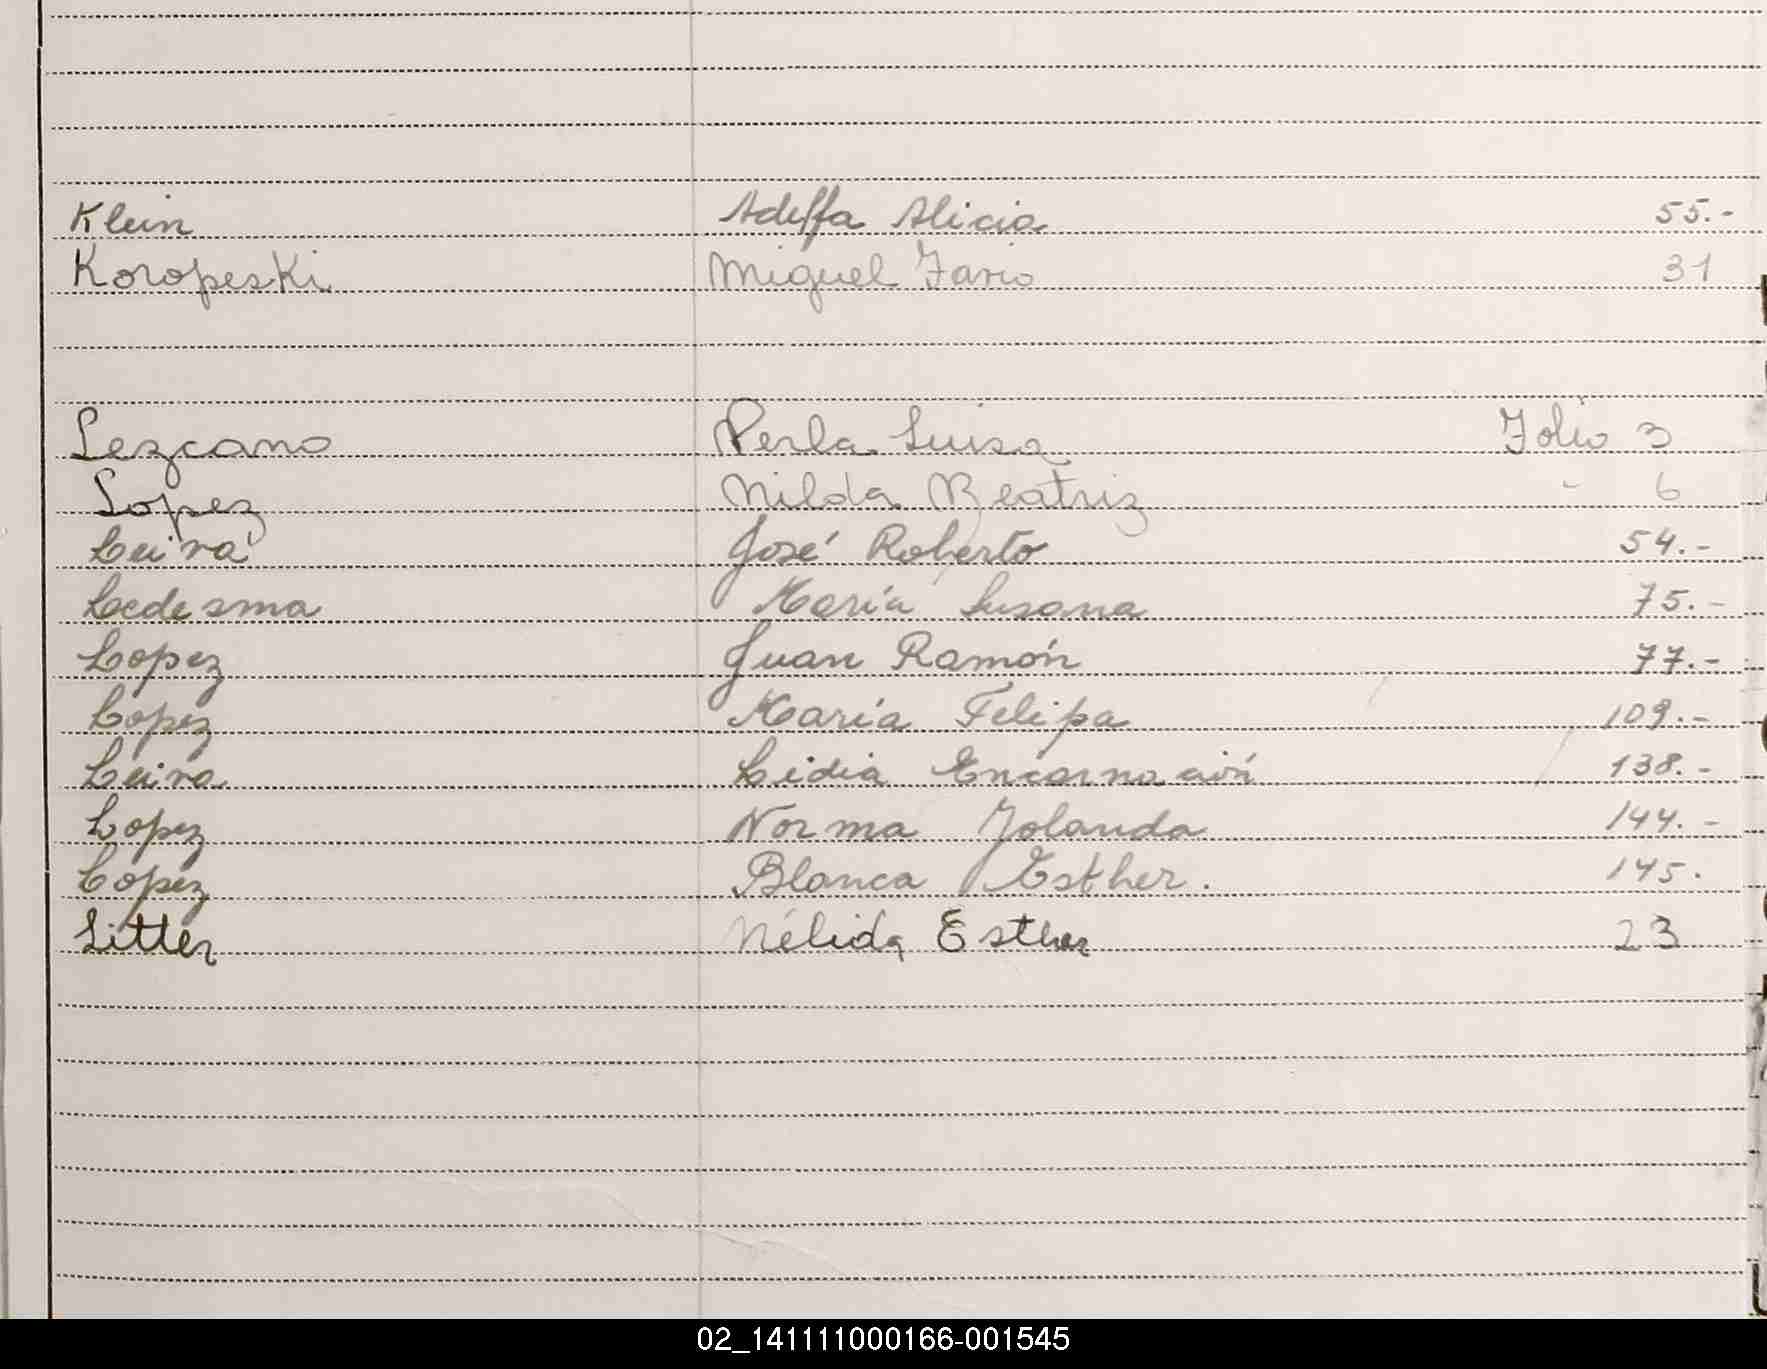 Klein Adelfa Alicia 55.-
Koropeski Miguel Fario 31
Lezcano Perla Luisa Folio 3
Lopez Nilda Beatriz - 6
Leiva José Roberto 54.-
Ledesma María Susana 75.-
Lopez Juan Ramón 77.-
Lopez María Felipa 109.-
Leiva Lidia Encarnación 138.-
Lopez Norma Yolanda 144.-
Lopez Blanca Esther. 145.
Litter Nélida Esther 23
02_141111000166-001545